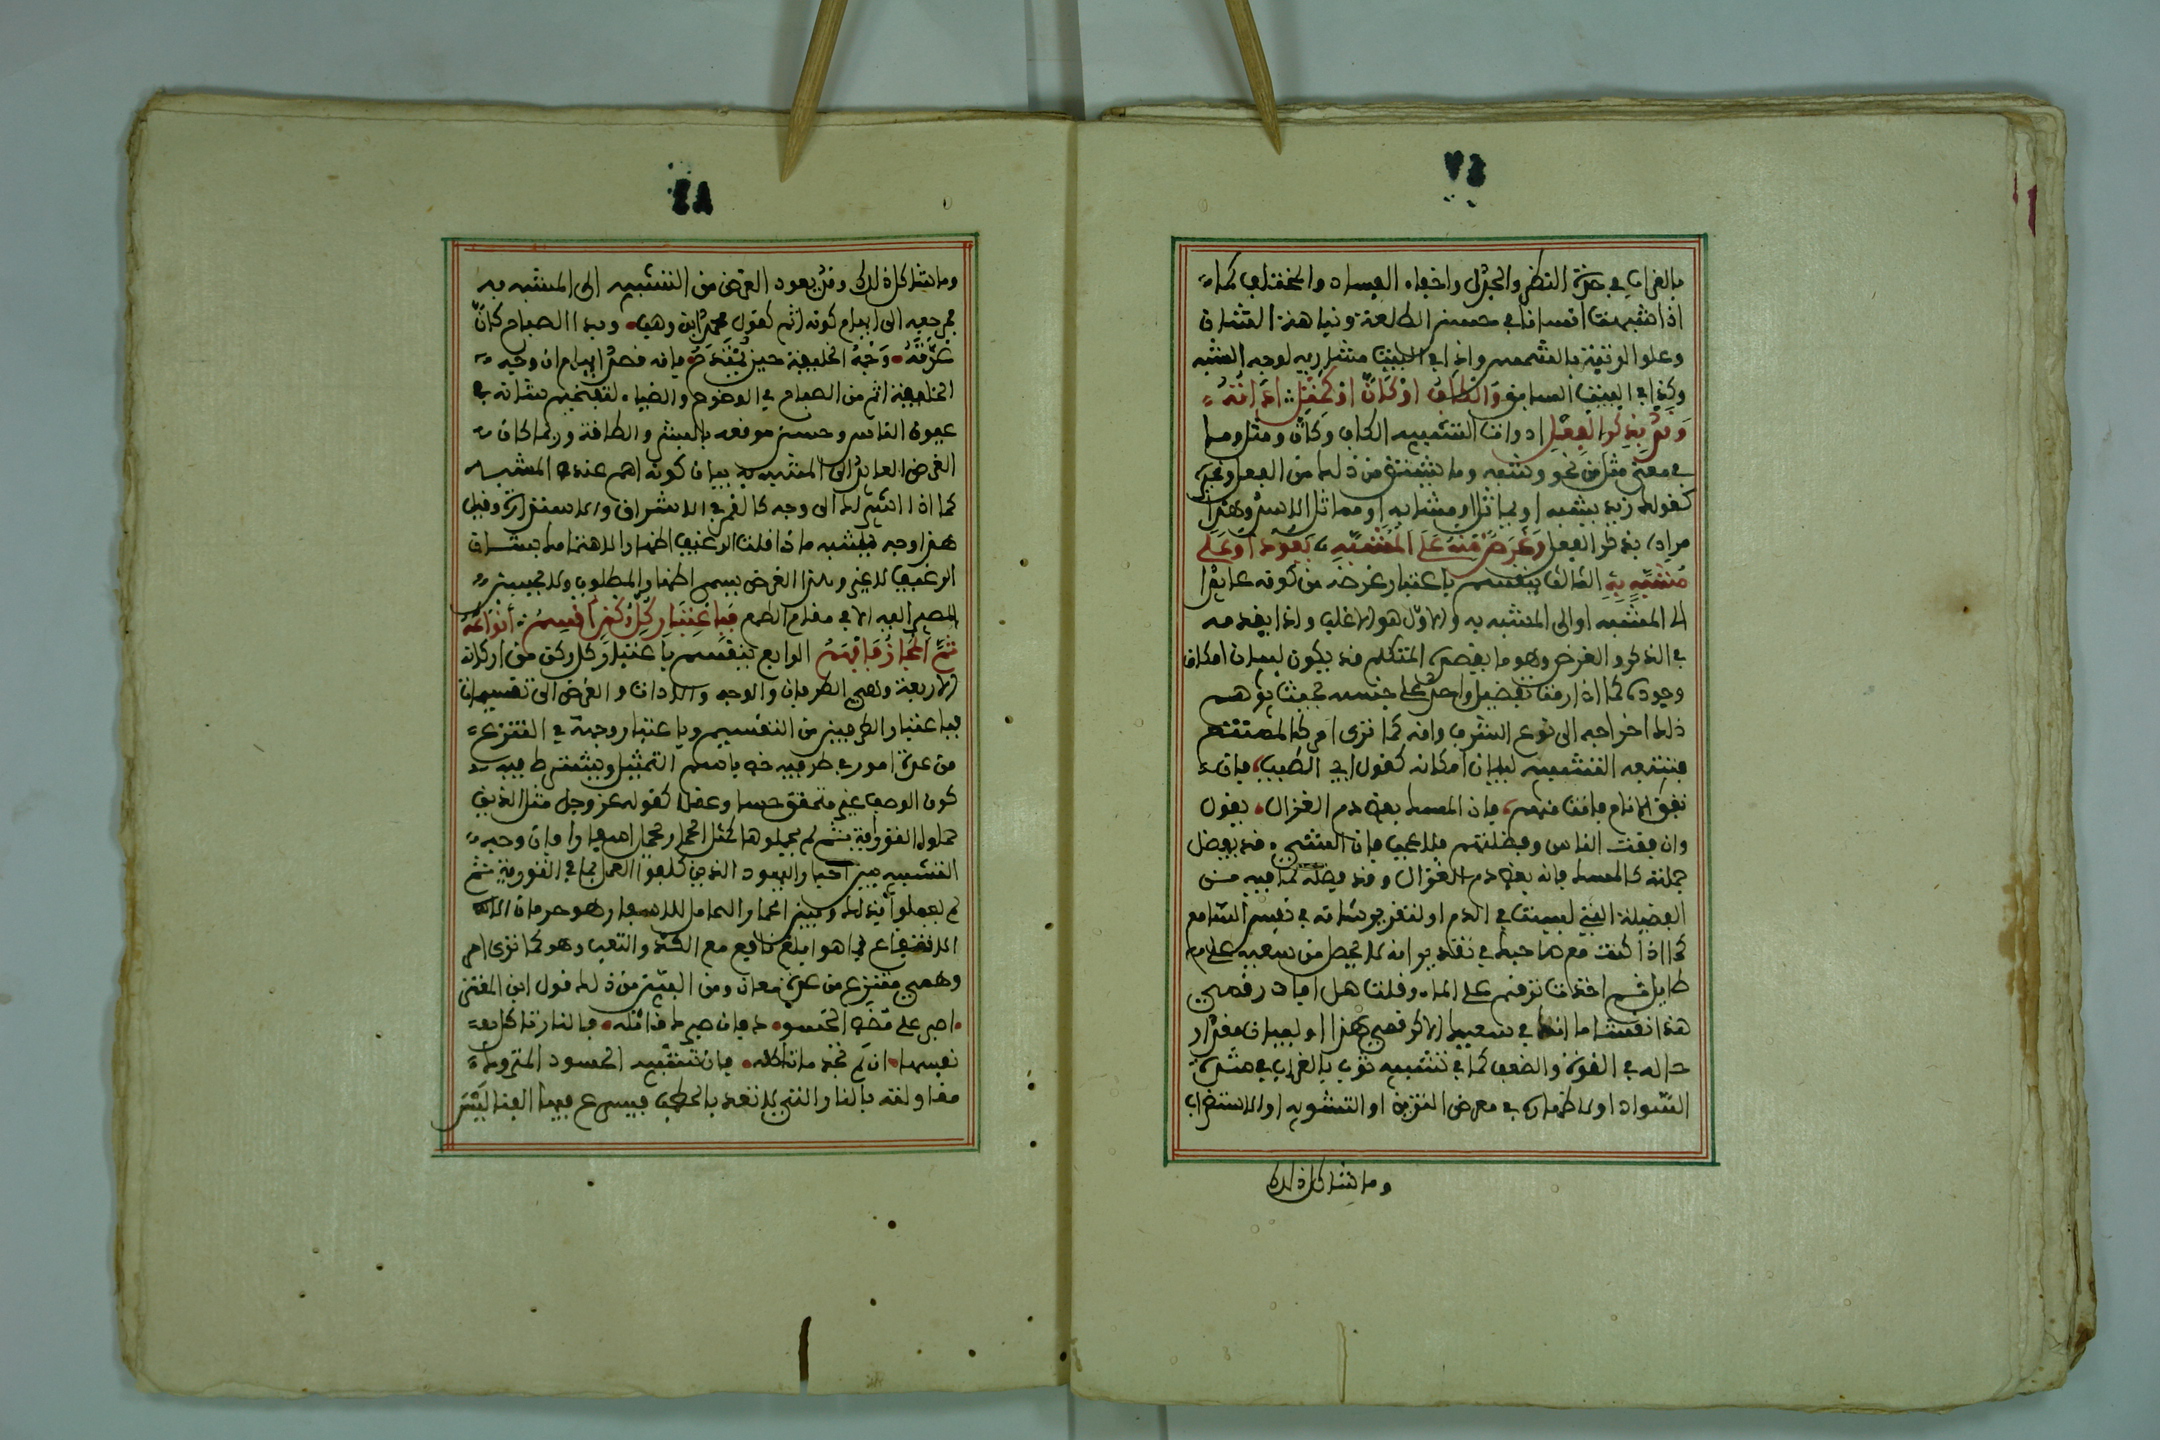 ٤٧
بالغراب في حدة النظر والحذر واخفاء الفساد والمختلف كما
اذا شبهت انسانا في حسن الطلعة ونباهة الشان
وعلو الرتبة بالشمس واذا في البيت مشار به لوجه الشبه
وكذا في البيت السابق والكاف او كان او كمثل اداته
وقد بذكر الفعل ادوات التشبيه الكاف وكأن ومثل وما
في معنى مثل من نحو وشبه وما يشتق من ذلك من الفعل ونحوه
كقولك زيد يشبه او يماثل او مشابه او مماثل الاسد وهذا
مراده بذكر الفعل وغرض منه على المشبه يعود او على
مشبه به الثالث ينقسم باعتبار غرضه من كونه عايدا
الى المشبه او الى المشبه به والاول هو الاغلب ولذا يقدمه
في الذكر والغرض وهو ما يقصده المتكلم قد يكون لبيان امكان
وجوده كما اذا رمت تفضيل واحد على جنسه بحيث يوهم
ذلك اخراجه الى نوع اشرف وانه كما ترى امر كالممتنع
فتتبعه التشبيه لبيان امكانه كقول ابي الطيب، فان
تفق الانام وانت منهم، فان المسك بعض دم الغزال، يقول
وان فقت الناس وفضلتهم فلا عجب فان الشيء قد يفضل
جملته كالمسك فانه بعض دم الغزال وقد فضله لما فيه من
الفضيلة التي ليست في الدم او لتقرير شانه في نفس السامع
كما اذا كنت مع صاحبك في تقدير انه لا يحصل من سعيه على
طايل ثم اخذت ترقم على الماء وقلت هل افاد رقمي
هذا نقشا ما انك في سعيك الا كرقمي هذا او لبيان مقدار
حاله في القوة والضعف كما في تشبيه ثوب بالغراب في شدة
السواد او لاظهاره في معرض التزيين او التشويه او الاستغراب
وما شاكل ذلك
٤٨
وما شاكل ذلك وقد يعود الغرض من التشبيه الى المشبه به
فمرجعه الى ايهام كونه اتم كقول محمد ابن وهيب، وبدا الصباح كان
غرته، وجه الخليفة حين يمتدح، فانه قصد ايهام ان وجه
الخليفة اتم من الصباح في الوضوح والضياء لتفخيم شانه في
عيون الناس وحسن موقعه بالبشر والطلاقة وربما كان
الغرض العايد الى المشبه به بيان كونه اهم عنده المشبه
كما اذا اشير لك الى وجه كالقمر في الاشراق والاستدارة وقيل
هذا وجه يشبه ماذا فقلت الرغيف اظهارا للاهتمام بشان
الرغيف لا غير وهذا الغرض يسمى اظهار المطلوب ولا يحسن
المصير اليه الا في مقام الطمع فباعتبار كل ركن اقسم انواعه
ثم المجاز فافهم الرابع ينقسم باعتبار كل ركن من اركانه
الاربعة وهي الطرفان والوجه والادات والغرض الى تقسيمات
فباعتبار الطرفين من التقسيم وباعتبار وجهه في المنتزع
من عدة امور في طرفيه خص باسم التمثيل ويشترط فيه
كون الوصف غير متحقق حسا وعقلا كقوله عز وجل مثل الذين
حملوا التورية ثم لم يحملوها كمثل الحمار يحمل اسفارا فان وجه
التشبيه بين احبار اليهود الذين كلفوا العمل بما في التورية ثم
لم يعملوا بذلك وبين الحمار الحامل للاسفار هو حرمان
الانتفاع بما هو ابلغ نافع مع الكد والتعب وهو كما ترى امر
وهمي منتزع من عدة معان ومن البين من ذلك قول ابن المعتز
اصبر على مضض الحسود، فان صبرك قاتله، فالنار تاكل
نفسها، ان لم تجد ما تاكله، فان تشبيه الحسود المتروك
مقاولته بالنار التي لا تمد بالحطب فيسرع فيها الفنا ليس